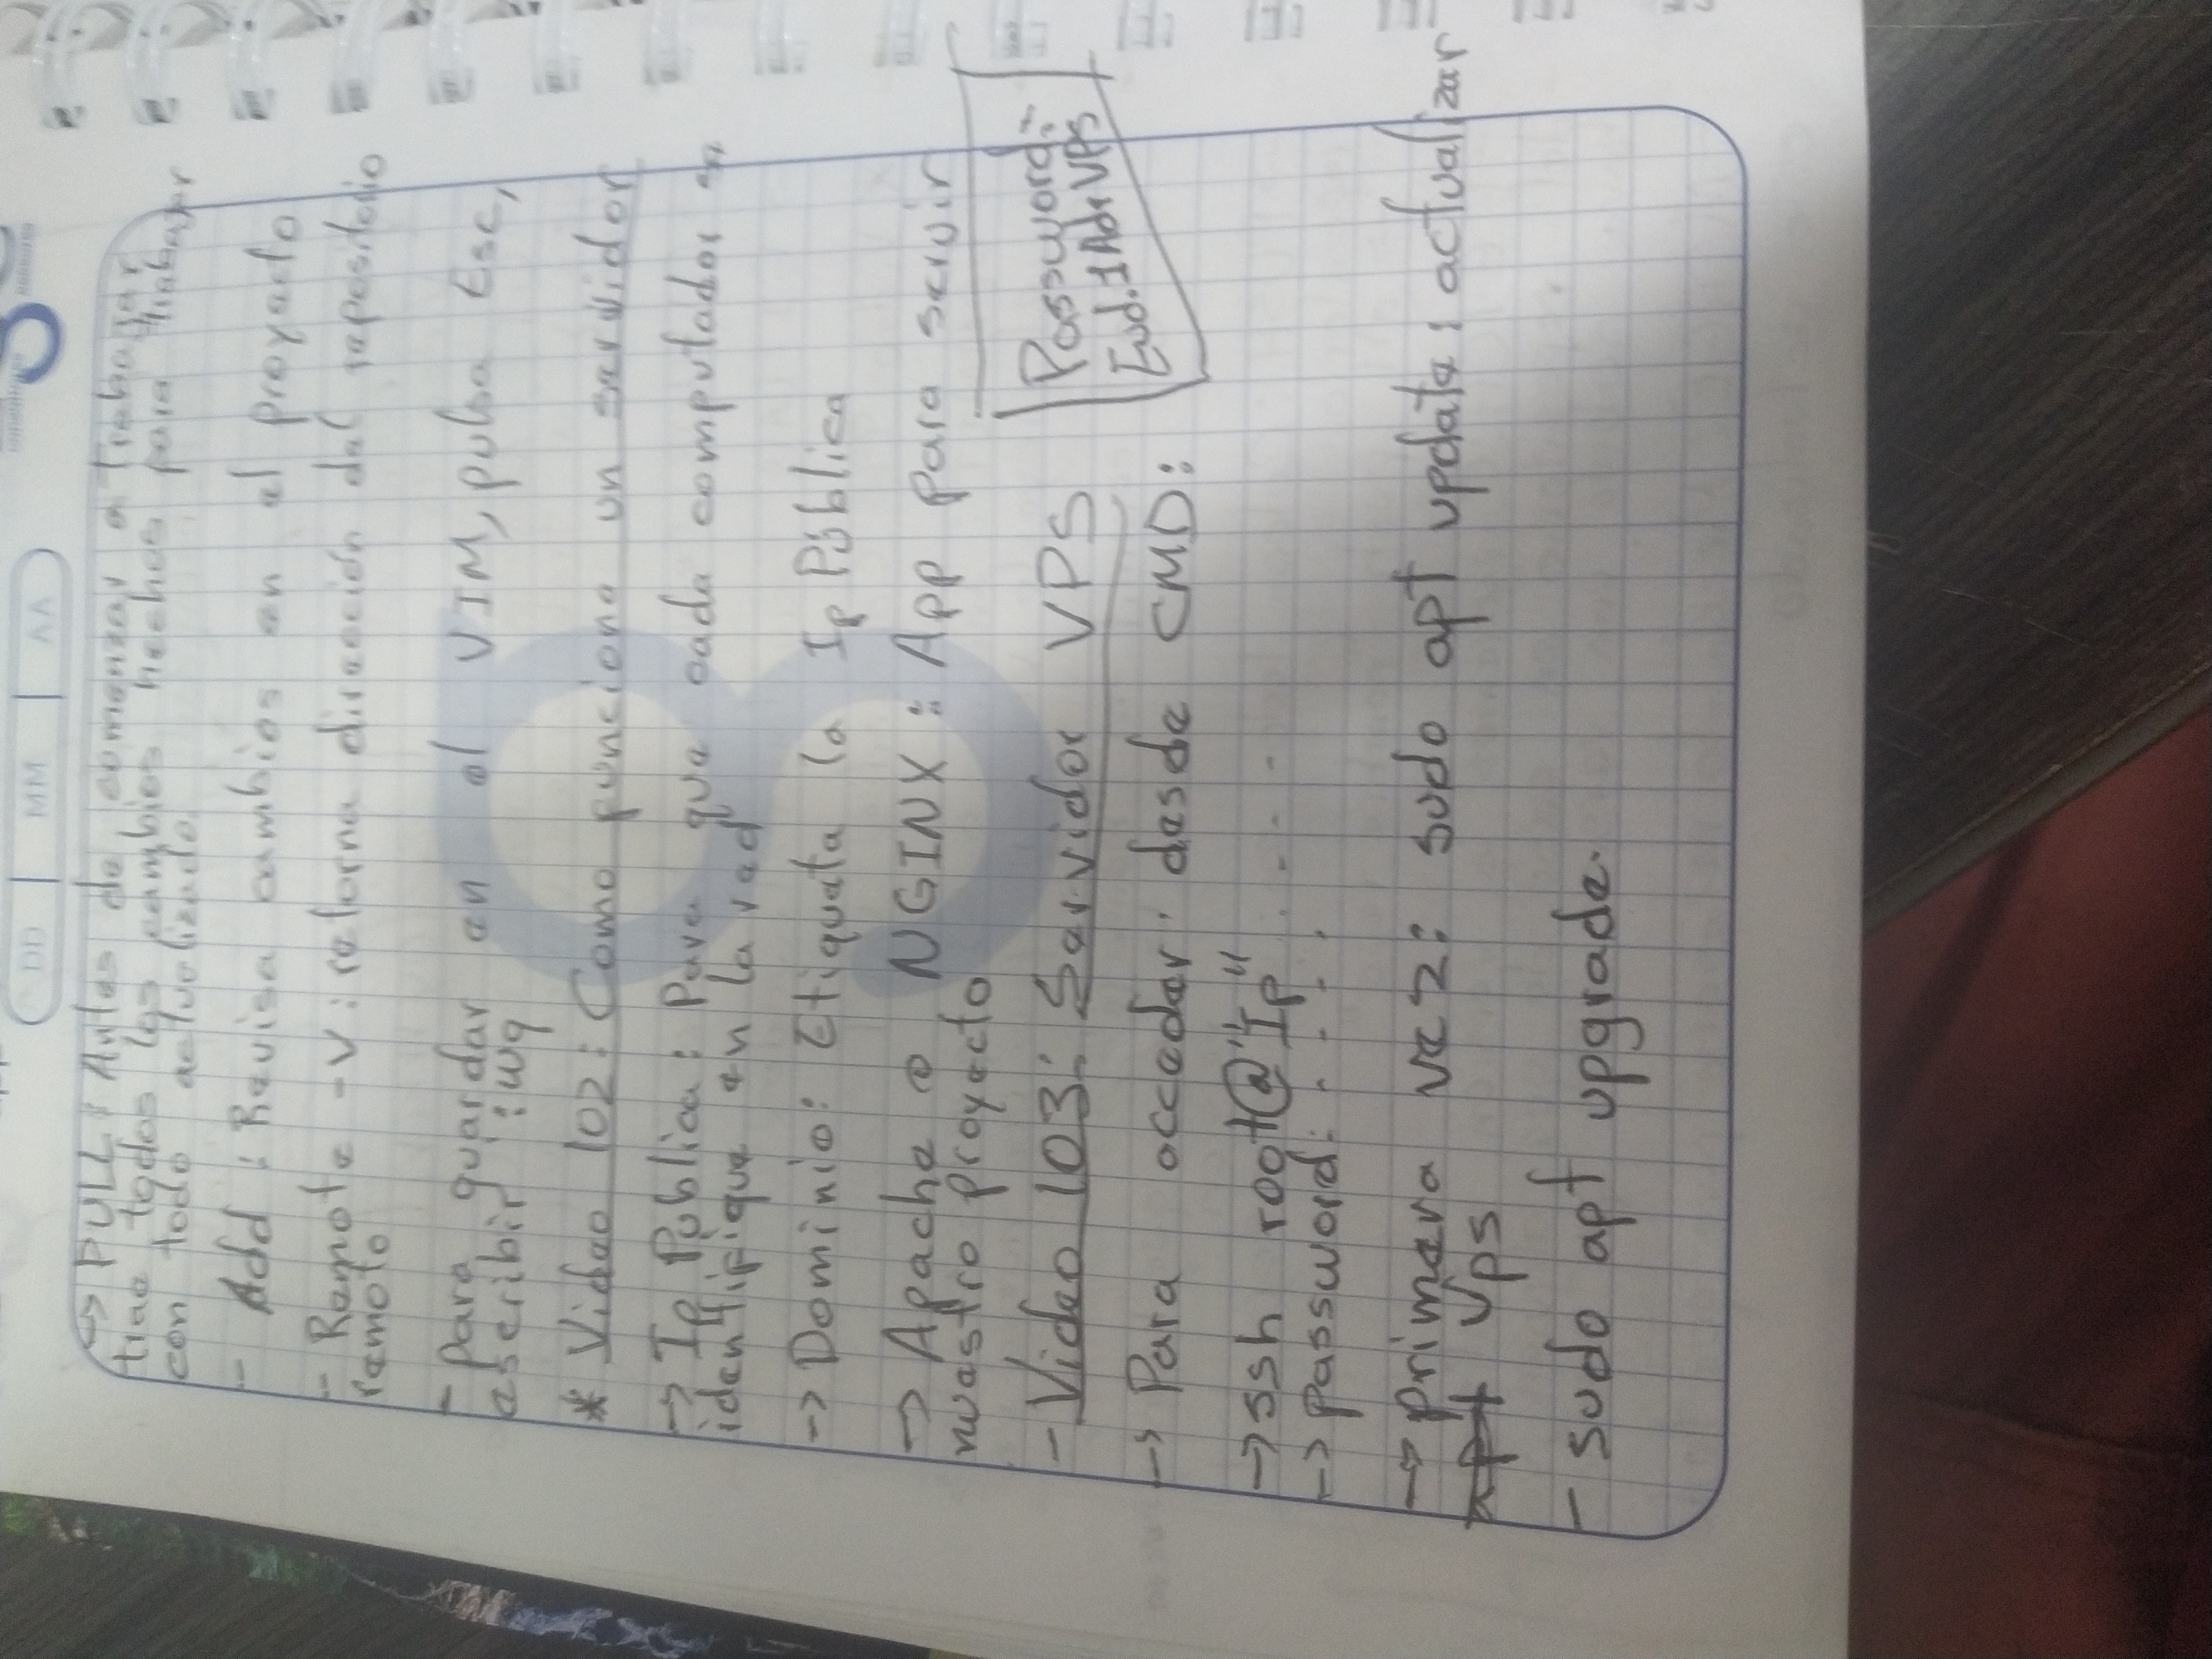 DD MM AA
→ PULL: Antes de comenzar a trabajar
trae todos los cambios hechos para trabajar
con todo actualizado.
- Add: Revisa cambios en el proyecto
- Remote -v: retorna dirección del repositorio
remoto
- para guardar en el VIM, pulsa Esc,
escribir :wq
* Video 102: Como funciona un servidor
→ Ip Publica: Para que cada computador se
identifique en la red
→ Dominio: Etiqueta la Ip Pública
→ Apache o NGINX: App para servir
nuestro proyecto
- Video 103: Servidor VPS
Password:
→ Para acceder desde CMD:
→ ssh root@"Ip" . . . .
→ password: - - - -
→ primera vez: sudo apt update: actualizar
apt Vps
- sudo apt upgrade.